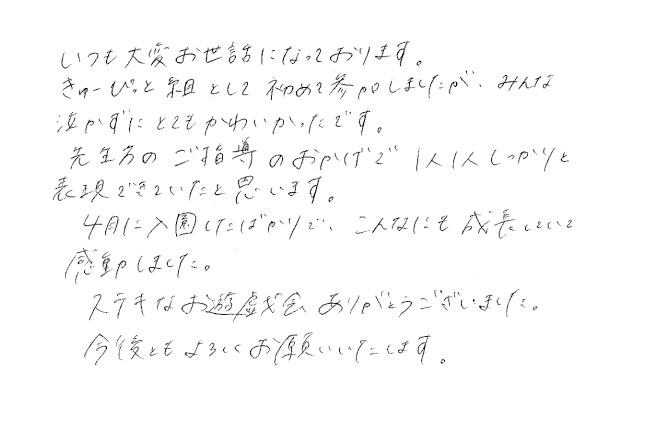 いつも大変お世話になっております。
きゅーぴっと組として初めて参加しましたが、みんな
泣かずにとてもかわいかったです。
先生方のご指導のおかげで1人1人しっかりと
表現できていたと思います。
4月に入園したばかりで、こんなにも成長していて
感動しました。
ステキなお遊戯会ありがとうございました。
今後ともよろしくお願いいたします。